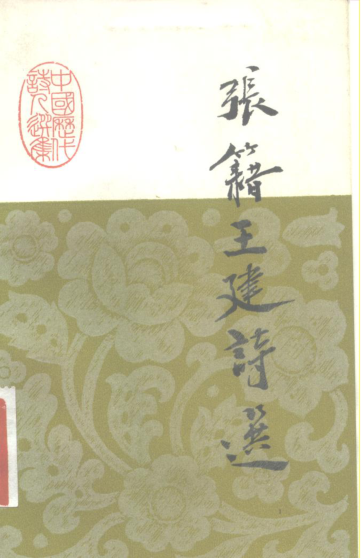 張籍王建詩選
中國歷代
詩人選集